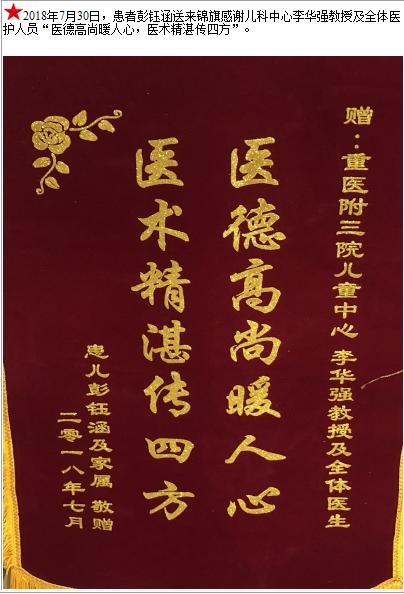 ★2018年7月30日，患者彭钰涵送来锦旗感谢儿科中心李华强教授及全体医
护人员“医德高尚暖人心，医术精湛传四方”。
赠：重医附三院儿童中心 李华强教授及全体医生
医德高尚暖人心
医术精湛传四方
患儿彭钰涵及家属 敬赠
二零一八年七月